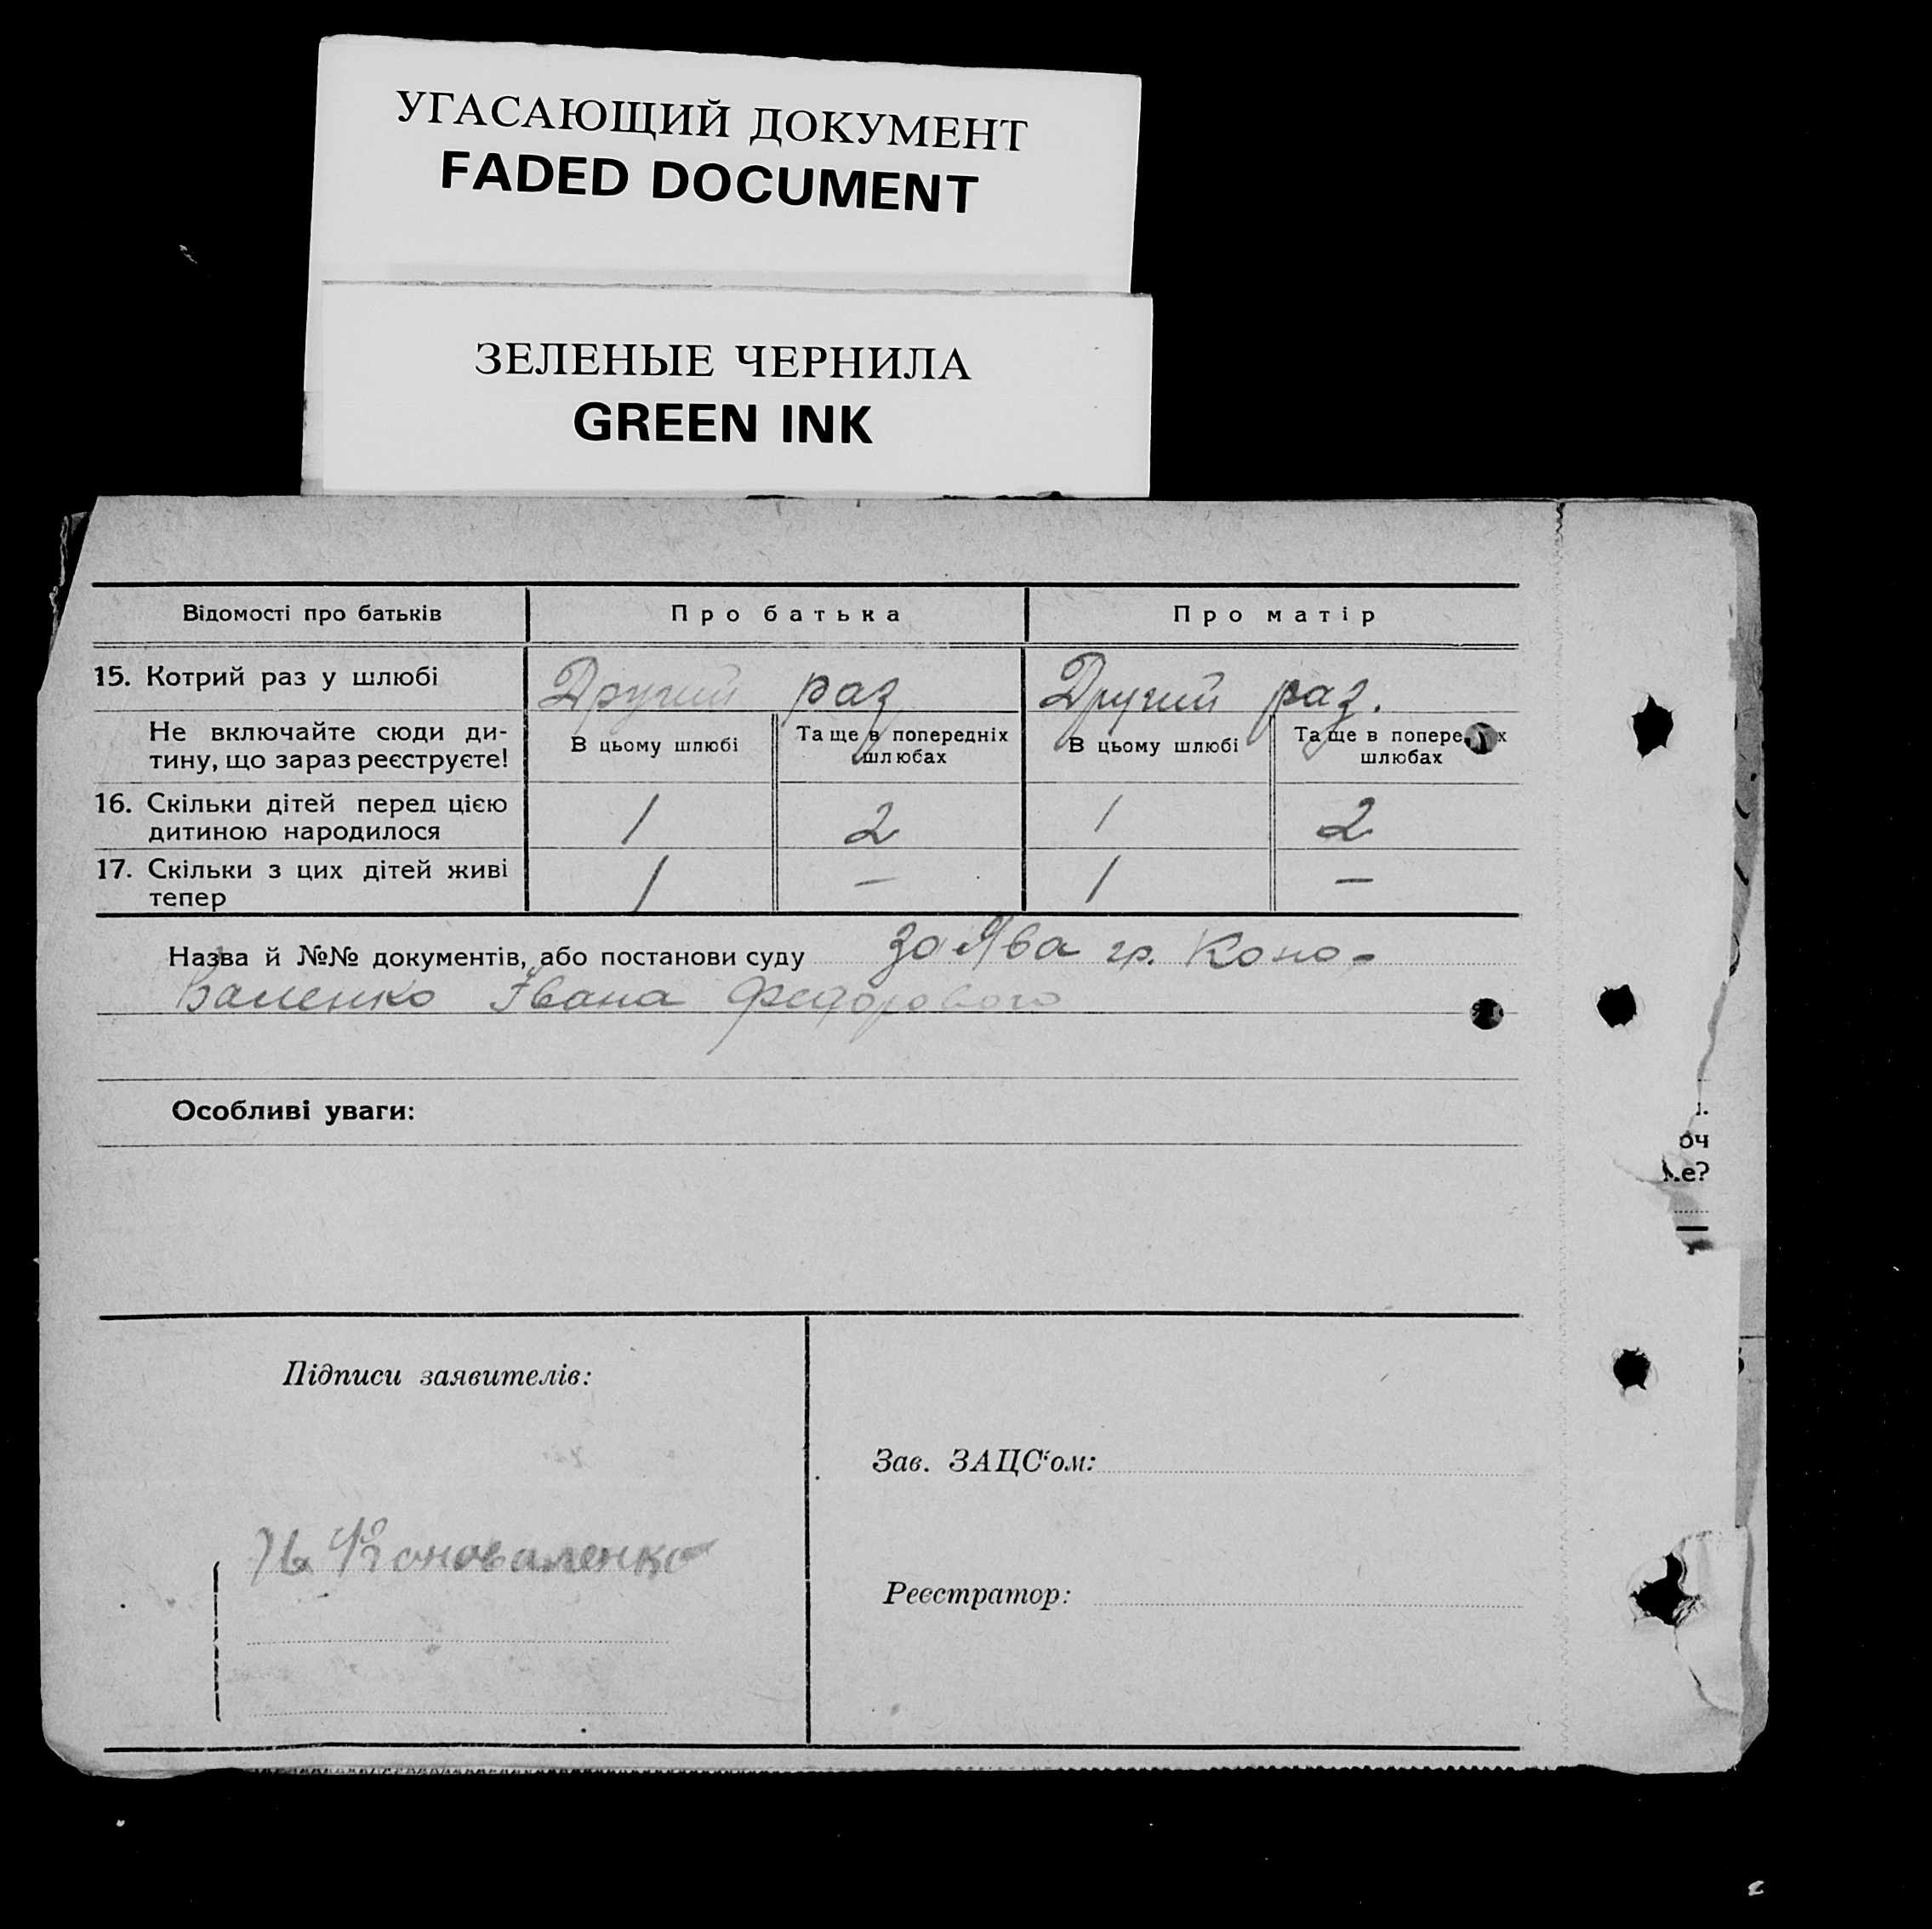 УГАСАЮЩИЙ ДОКУМЕНТ
FADED DOCUMENT
ЗЕЛЕНЫЕ ЧЕРНИЛА
GREEN INK
Відомості про батьків Про батька Про матір
15. Котрий раз у шлюбі Другий раз Другий раз.
Не включайте сюди ди-
тину, що зараз реєструєте!
В цьому шлюбі
Та ще в попередніх
шлюбах
В цьому шлюбі
Та ще в попере х
шлюбах
16. Скільки дітей перед цією
дитиною народилося
1 2 1 2
17. Скільки з цих дітей живі
тепер
1 — 1 —
Назва й №№ документів, або постанови суду заява гр. Коно-
Валенко Івана Федорового
Особливі уваги:
Підписи заявителів:
Зав. ЗАЦС‘ом:
Коноваленко
Реєстратор:
оч
е?